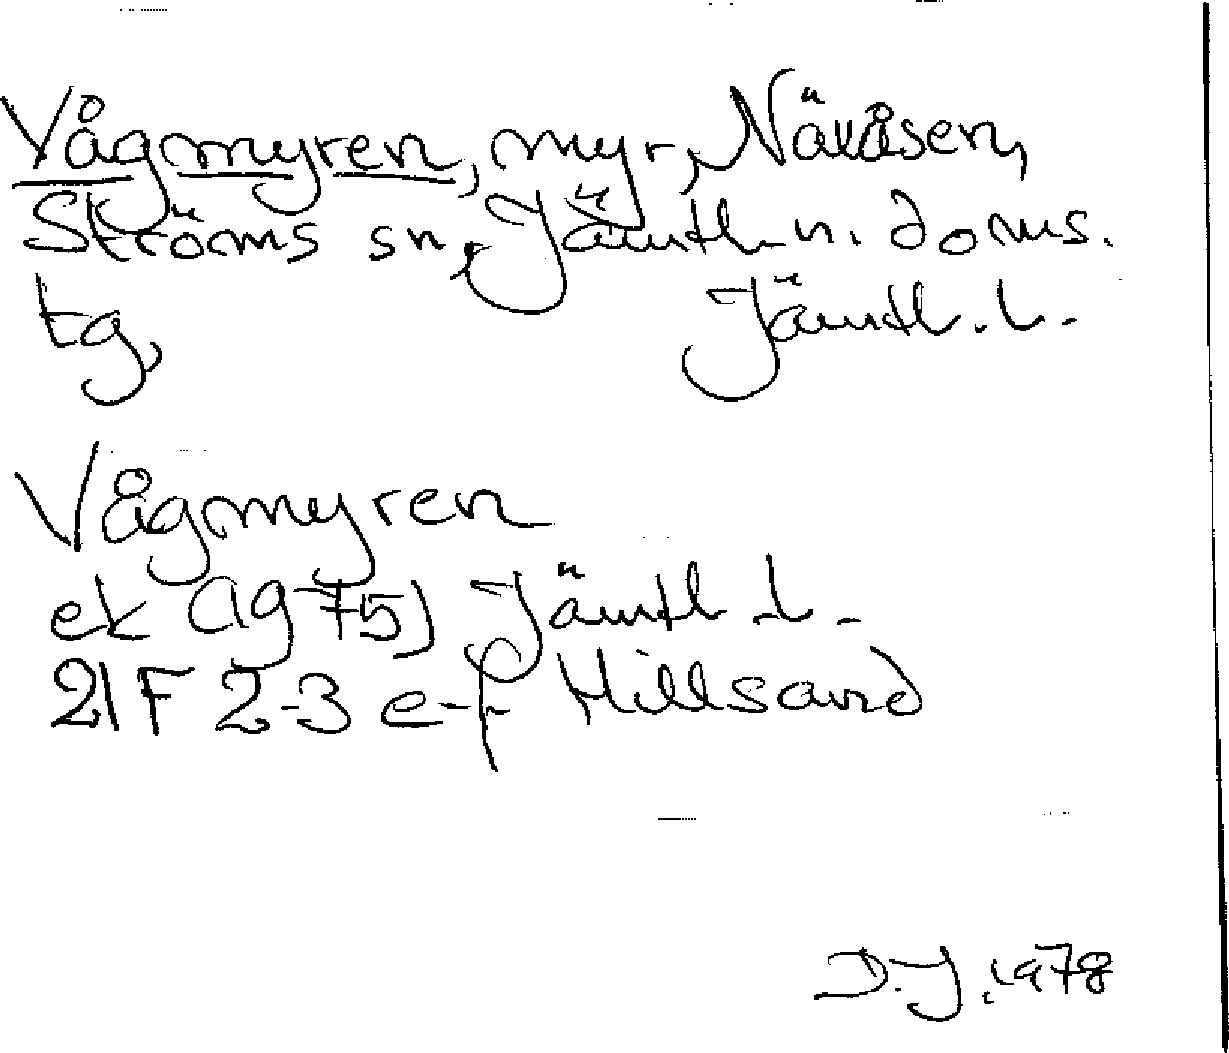 Vågmyren, myr, Näkåsen,
Ströms sn, Jämtl. n. doms.
tg, Jämtl. l.
Vågmyren
ek Ag 75J Jämtl l.
21F 2-3 e-f Hillsand
D.J. 1978